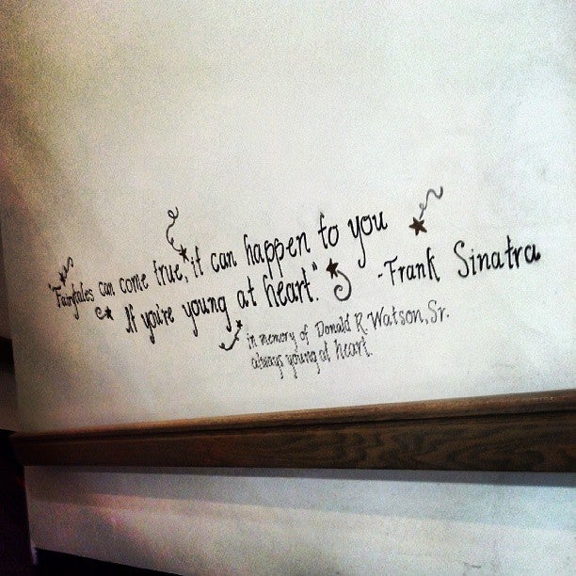 "Fairytales can come true, it can happen to you
If you're young at heart."
-Frank Sinatra
in memory of Donald R. Watson, Sr.
always young at heart.